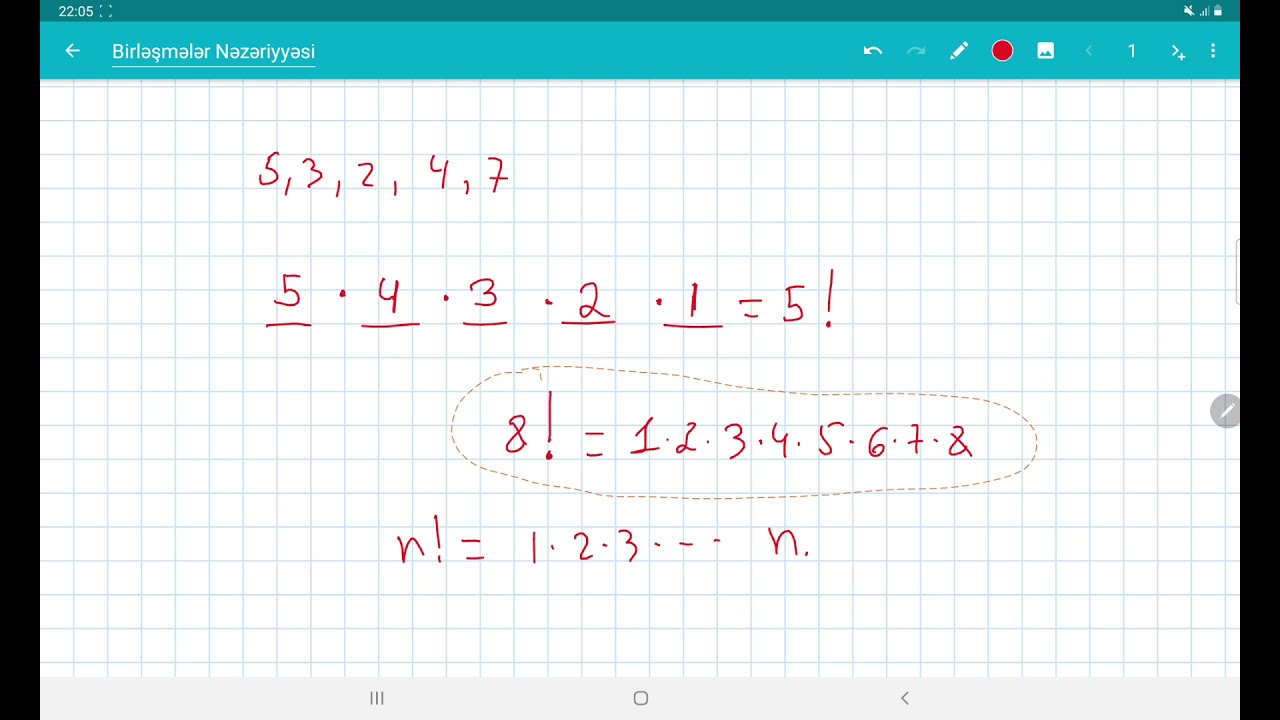 22:05
Birləşmələr Nəzəriyyəsi 1
5, 3, 2, 4, 7
5 · 4 · 3 · 2 · 1 = 5!
8! = 1·2·3·4·5·6·7·8
n! = 1·2·3·--· n.